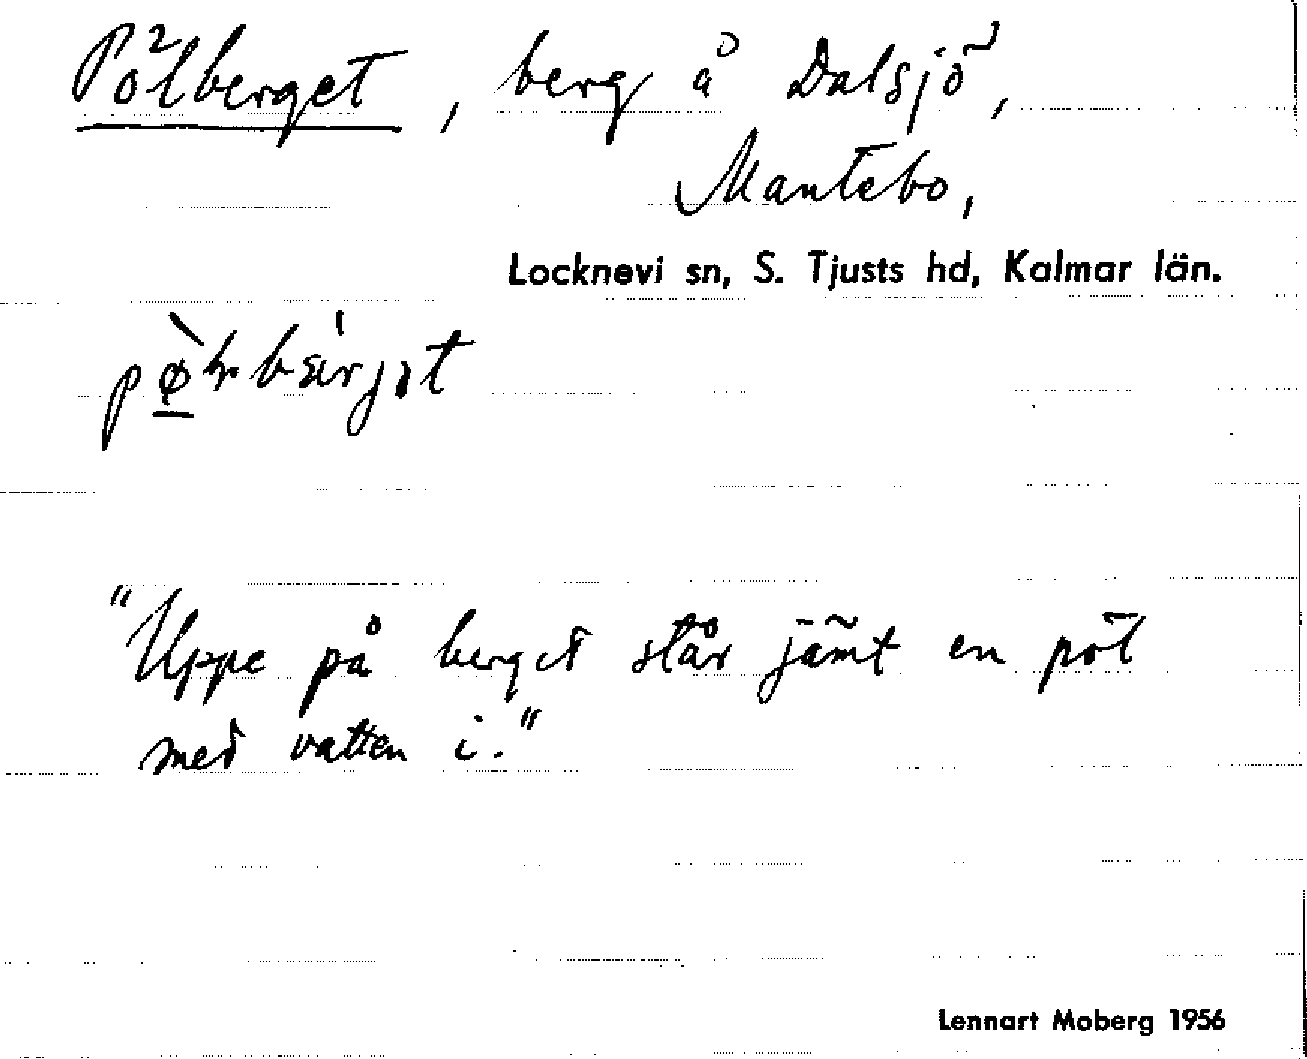 Pölberget, berg å Dalsjö,
Mantebo,
Locknevi sn, S. Tjusts hd, Kalmar län.
"Uppe på berget står jämt en pöl
med vatten i."
Lennart Moberg 1956